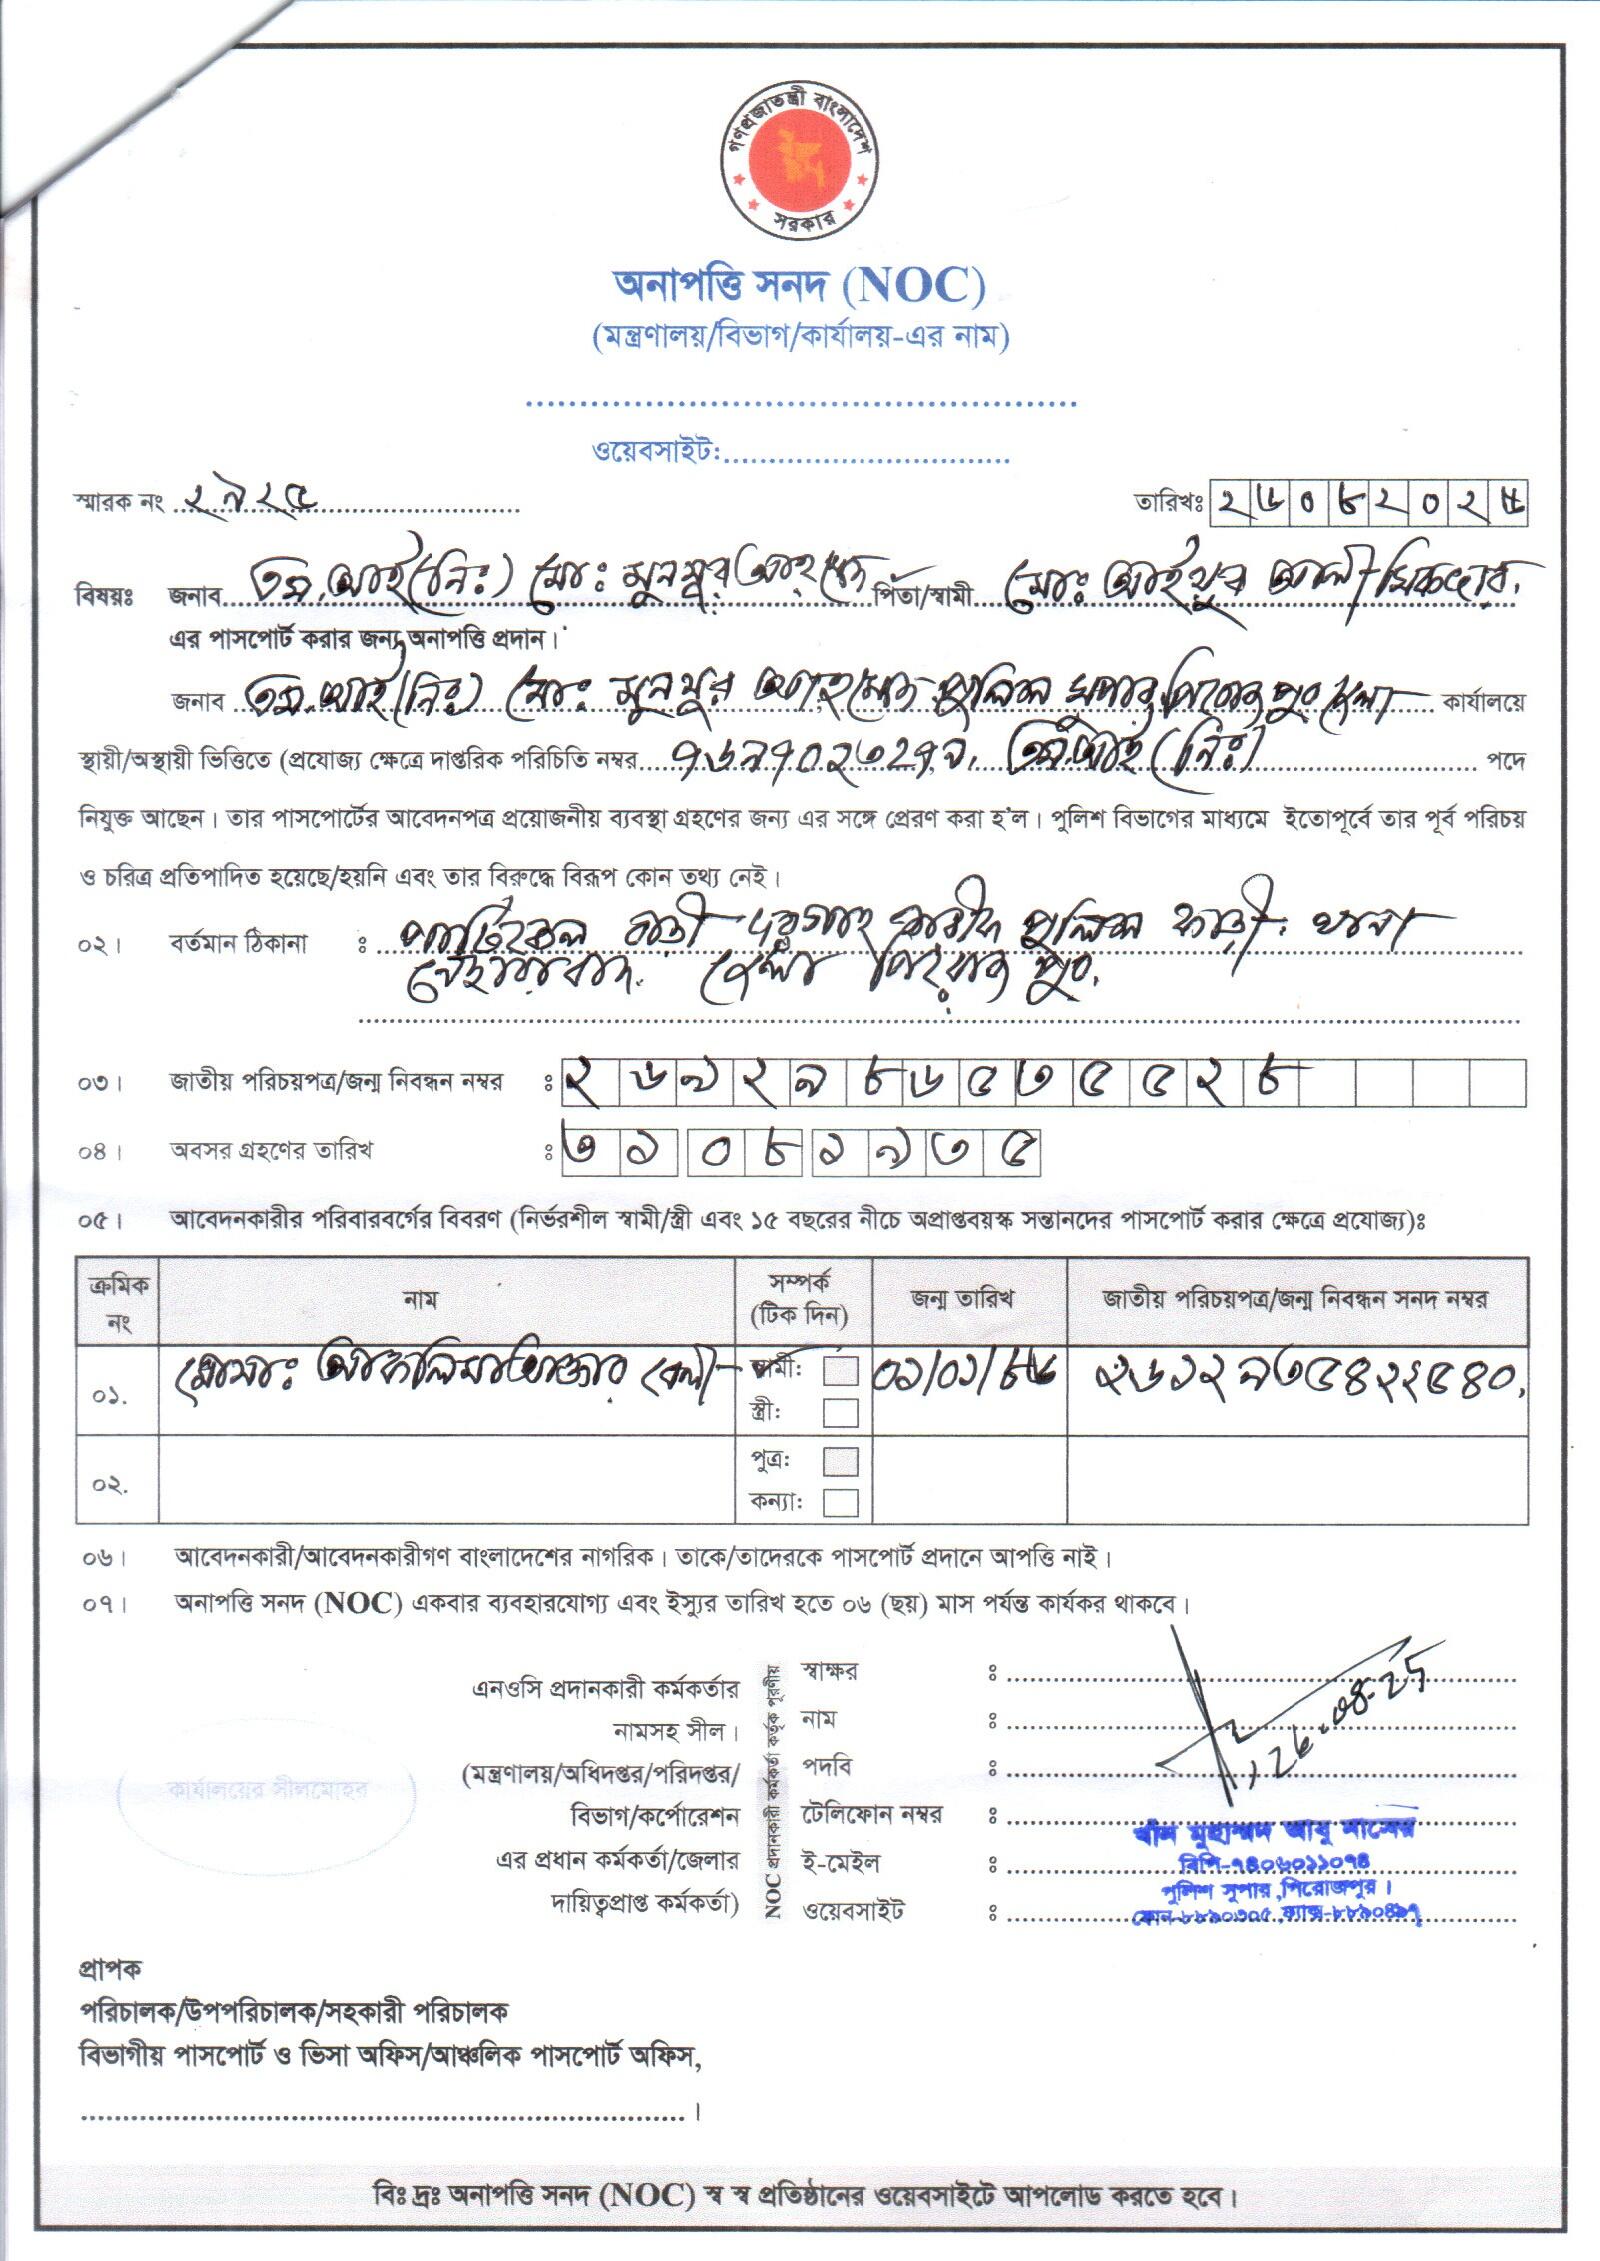 গণপ্রজাতন্ত্রী বাংলাদেশ
সরকার
অনাপত্তি সনদ (NOC)
(মন্ত্রণালয়/বিভাগ/কার্যালয়-এর নাম)
ওয়েবসাইট:
স্মারক নং ২৯২৫ তারিখঃ ২৬০৮২০২৫
বিষয়ঃ জনাব এস.আই(নিঃ) মোঃ মুনসুর আহমেদ পিতা/স্বামী মোঃ আইয়ুব আলী সিকদার.
এর পাসপোর্ট করার জন্য অনাপত্তি প্রদান।
জনাব এস.আই(নিঃ) মোঃ মুনসুর আহমেদ পুলিশ সুপার, পিরোজপুর জেলা কার্যালয়ে
স্থায়ী/অস্থায়ী ভিত্তিতে (প্রযোজ্য ক্ষেত্রে দাপ্তরিক পরিচিতি নম্বর এস.আই(নিঃ) পদে
নিযুক্ত আছেন। তার পাসপোর্টের আবেদনপত্র প্রয়োজনীয় ব্যবস্থা গ্রহণের জন্য এর সঙ্গে প্রেরণ করা হ'ল। পুলিশ বিভাগের মাধ্যমে ইতোপূর্বে তার পূর্ব পরিচয়
ও চরিত্র প্রতিপাদিত হয়েছে/হয়নি এবং তার বিরুদ্ধে বিরূপ কোন তথ্য নেই।
০২। বর্তমান ঠিকানা : পুলিশ ফাড়ী. থানা
নেছারাবাদ. জেলা পিরোজপুর.
০৩। জাতীয় পরিচয়পত্র/জন্ম নিবন্ধন নম্বর : ২৬৯২৯৮৬৫৩৫৫২৮
০৪। অবসর গ্রহণের তারিখ : ৩১০৮১৯৩৫
০৫। আবেদনকারীর পরিবারবর্গের বিবরণ (নির্ভরশীল স্বামী/স্ত্রী এবং ১৫ বছরের নীচে অপ্রাপ্তবয়স্ক সন্তানদের পাসপোর্ট করার ক্ষেত্রে প্রযোজ্য)ঃ
ক্রমিক নং নাম সম্পর্ক (টিক দিন) জন্ম তারিখ জাতীয় পরিচয়পত্র/জন্ম নিবন্ধন সনদ নম্বর
০১. মোসাঃ স্বামী: ০১/০১/৮৬
স্ত্রী:
০২. পুত্র:
কন্যা:
০৬। আবেদনকারী/আবেদনকারীগণ বাংলাদেশের নাগরিক। তাকে/তাদেরকে পাসপোর্ট প্রদানে আপত্তি নাই।
০৭। অনাপত্তি সনদ (NOC) একবার ব্যবহারযোগ্য এবং ইস্যুর তারিখ হতে ০৬ (ছয়) মাস পর্যন্ত কার্যকর থাকবে।
এনওসি প্রদানকারী কর্মকর্তার
নামসহ সীল।
(মন্ত্রণালয়/অধিদপ্তর/পরিদপ্তর/
বিভাগ/কর্পোরেশন
এর প্রধান কর্মকর্তা/জেলার
দায়িত্বপ্রাপ্ত কর্মকর্তা)
কার্যালয়ের সীলমোহর
NOC প্রদানকারী কর্মকর্তা কর্তৃক পূরণীয়
স্বাক্ষর :
নাম :
পদবি :
টেলিফোন নম্বর :
ই-মেইল :
ওয়েবসাইট :
26-08-25
খাঁন মুহাম্মদ আবু নাসের
বিপি-৭৪০৬০১১০৭৪
পুলিশ সুপার, পিরোজপুর।
ফোন-৮৮৯০৩০৫, ফ্যাক্স-৮৮৯০৪৯৭
প্রাপক
পরিচালক/উপপরিচালক/সহকারী পরিচালক
বিভাগীয় পাসপোর্ট ও ভিসা অফিস/আঞ্চলিক পাসপোর্ট অফিস,
।
বিঃ দ্রঃ অনাপত্তি সনদ (NOC) স্ব স্ব প্রতিষ্ঠানের ওয়েবসাইটে আপলোড করতে হবে।